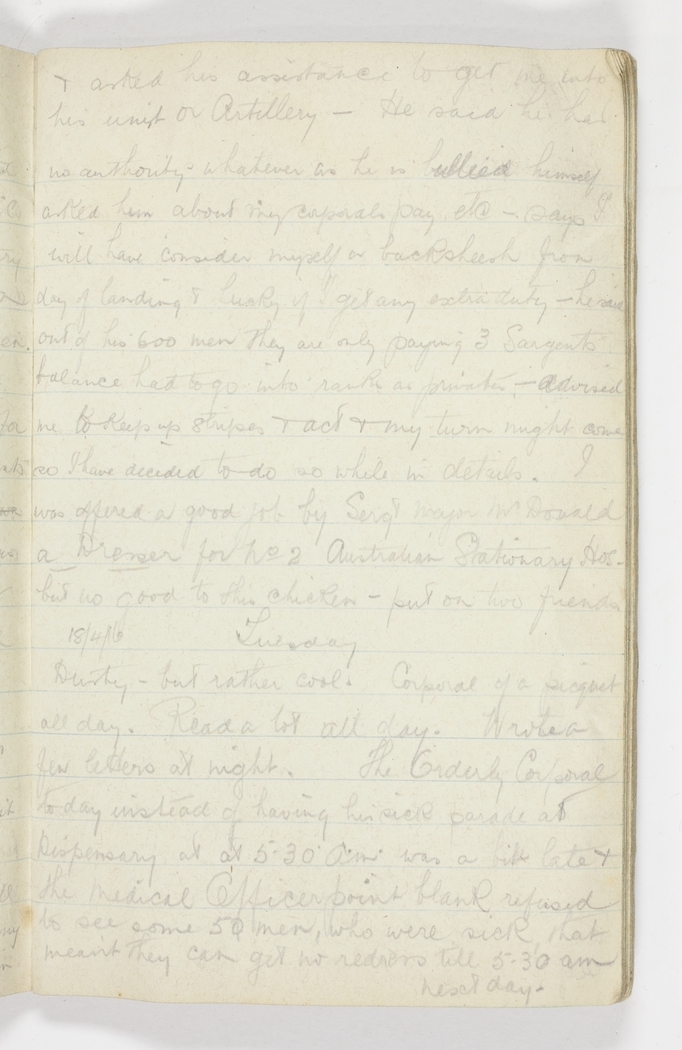 & asked his assistance to get me into
his unit or Artillery - He said he had
no authority whatever as he is bullied himself
asked him about my corporals pay, etc - says I
will have consider myself a backsheesh from
day of landing & lucky if I get any extra duty - he said
out of his 600 men they are only paying 3 Sargents
balance had to go into ranks as privates, - advised
me to keep up stripes & act & my turn might come
so I have decided to do so while in details. I
was offered a good job by Sergt Major McDonald
a Dresser for No 2 Australian Stationary Hos-
but no good to this chicken - put on two friends
18/4/16 Tuesday
Dusty - but rather cool. Corporal of a picquet
all day. Read a lot all day. Wrote a
few letters at night. The Orderly Corporal
today instead of having his sick parade at
Dispensary at at 5.30 a.m. was a bit late &
the Medical Officer point blank refused
to see some 50 men, who were sick, that
meant they can get no redress till 5-30 am
next day.